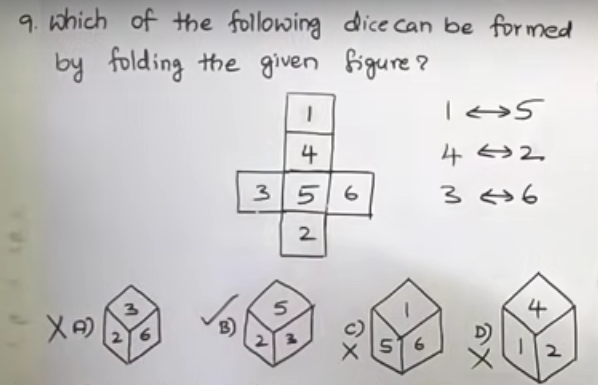 9. Which of the following dice can be formed
by folding the given figure?
1
4
3 5 6
2
1 ↔ 5
4 ↔ 2
3 ↔ 6
X A) 3 2 6
✓ B) 5 2 3
C) X 1 5 6
D) X 4 1 2